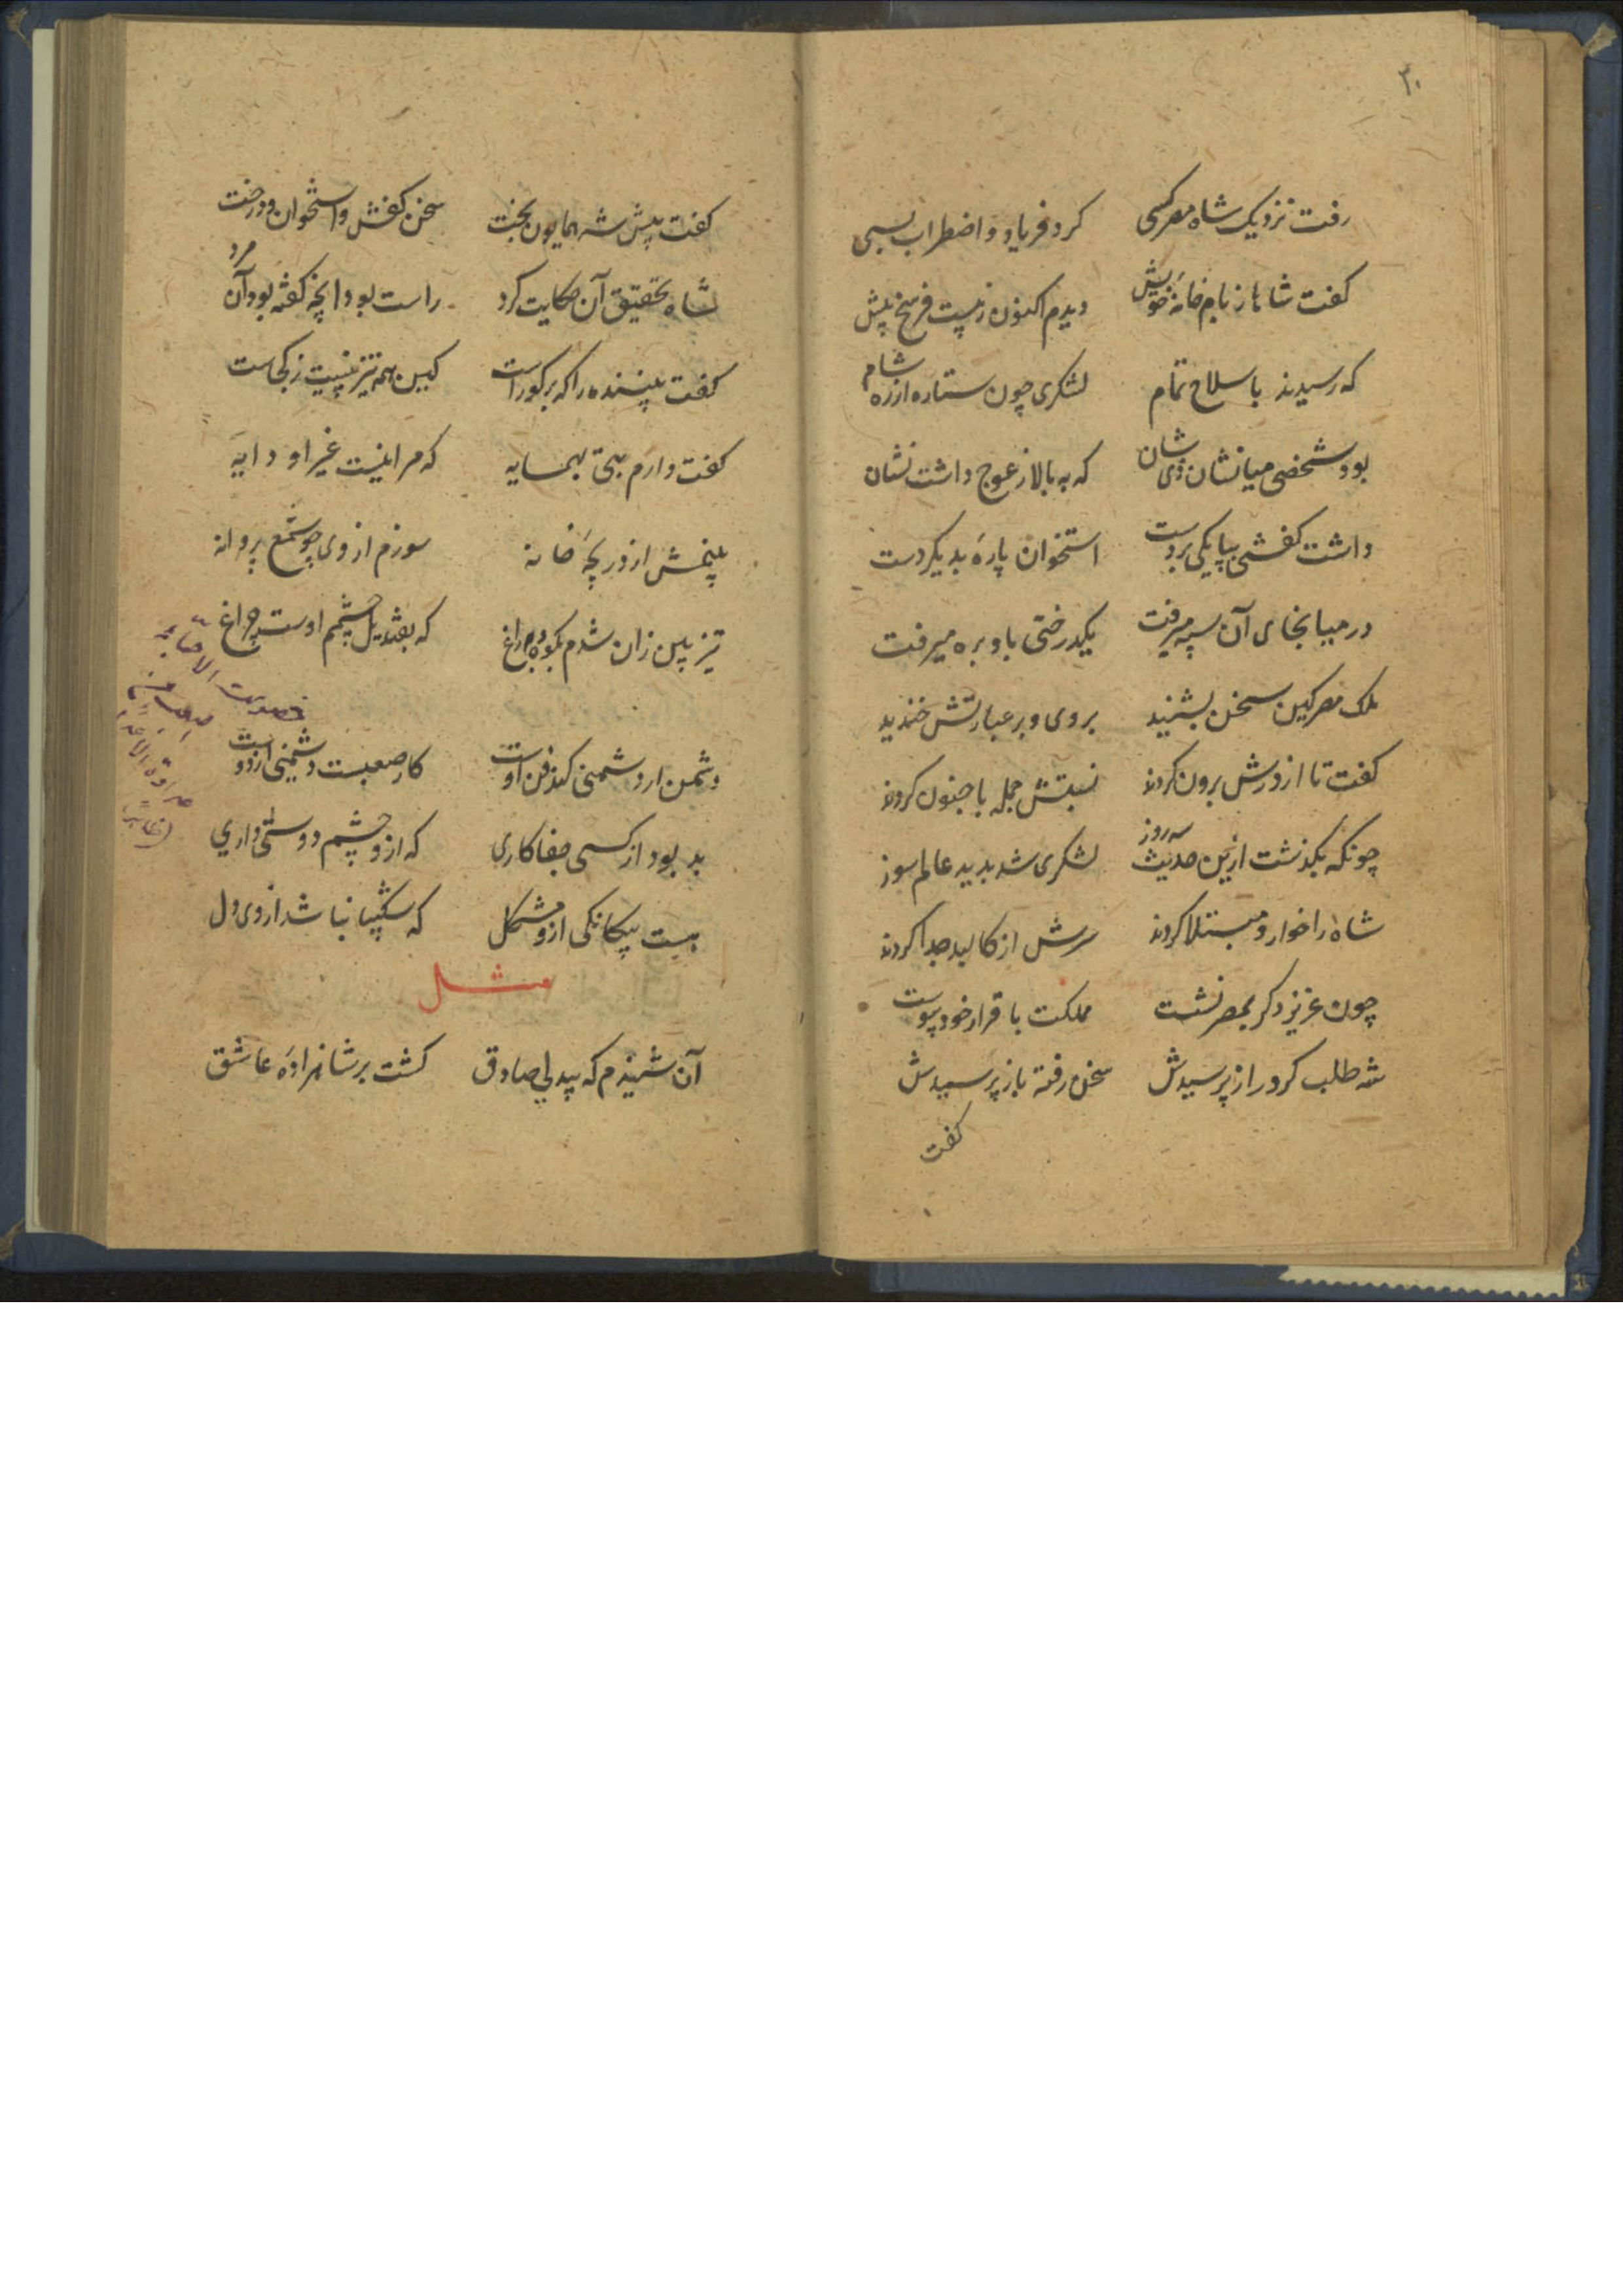 ۳۰
رفت نزدیک شاه مصر کسی کرد فریاد و اضطراب بسی
کفت شاها ز بام خانه خویش دیدم اکنون ز بیست فرسخ پیش
که رسیدند با سلاح تمام لشکری چون ستاره از ره شام
بود شخصی میانشان ذی شان که به بالا ز عوج داشت نشان
داشت کفشی بپا یکی بر دست استخوان پارهٔ بدیکر دست
در میا بجای آن سپه میرفت یکدرختی باو بره میرفت
ملک مصر کین سخن بشنید بروی و بر عبارتش خندید
کفت تا از درش برون کردند نسبتش جمله با جنون کردند
چونکه بکذشت ازین حدیث سه روز لشکری شد بدید عالم سوز
شاه را خوار و مبتلا کردند سرش از کالبد جدا کردند
چون عزیز دکر بمصر نشست مملکت با قرار خود پیوست
شه طلب کرد و راز پرسیدش سخن رفته باز پرسیدش
کفت
کفت پیش شه همایون بخت سخن کفش و استخوان و درخت
شاه تحقیق آن حکایت کرد راست بود انچه کفته بود آن مرد
کفت بیننده را که بر کو راست کین همه تیز بینیت ز کجاست
کفت دارم بتی بهمسایه که مرا نیست غیر او دایه
بینمش از دریچهٔ خانه سوزم از وی چو شمع پروانه
تیز بین زان شدم بکوه و براغ که بقندیل چشمم اوست چراغ
دشمن ار دشمنی کند فن اوست کار صعبست دشمنی از دوست
بد بود از کسی جفاکاری که ازو چشم دوستی داری
هست بیکانکی ازو مشکل که شکیبا نباشد از وی دل
مثل
آن شنیدم که بیدلی صادق کشت بر شاهزادهٔ عاشق
خصومت الاحبا
عداوة الاعداء